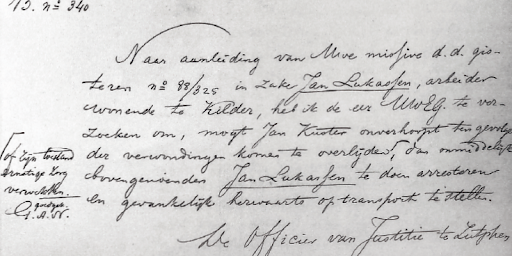 13. nº 340
Naar aanleiding van Uwe missive d.d. gis-
teren nº 88/325 in zake Jan Lukassen, arbeider
wonende te Kilder, heb ik de eer UWEG. te ver-
zoeken om, mogt Jan Kuster onverhoopt ten gevolge
der verwondingen komen te overlijden, dan onmiddellijk
bovengenoemden Jan Lukassen te doen arresteren
en gevankelijk herwaarts op transport te stellen.
De Officier van Justitie te Zutphen
[of zijn toestand
ernstige zorg
verwekken.
G.A.W.